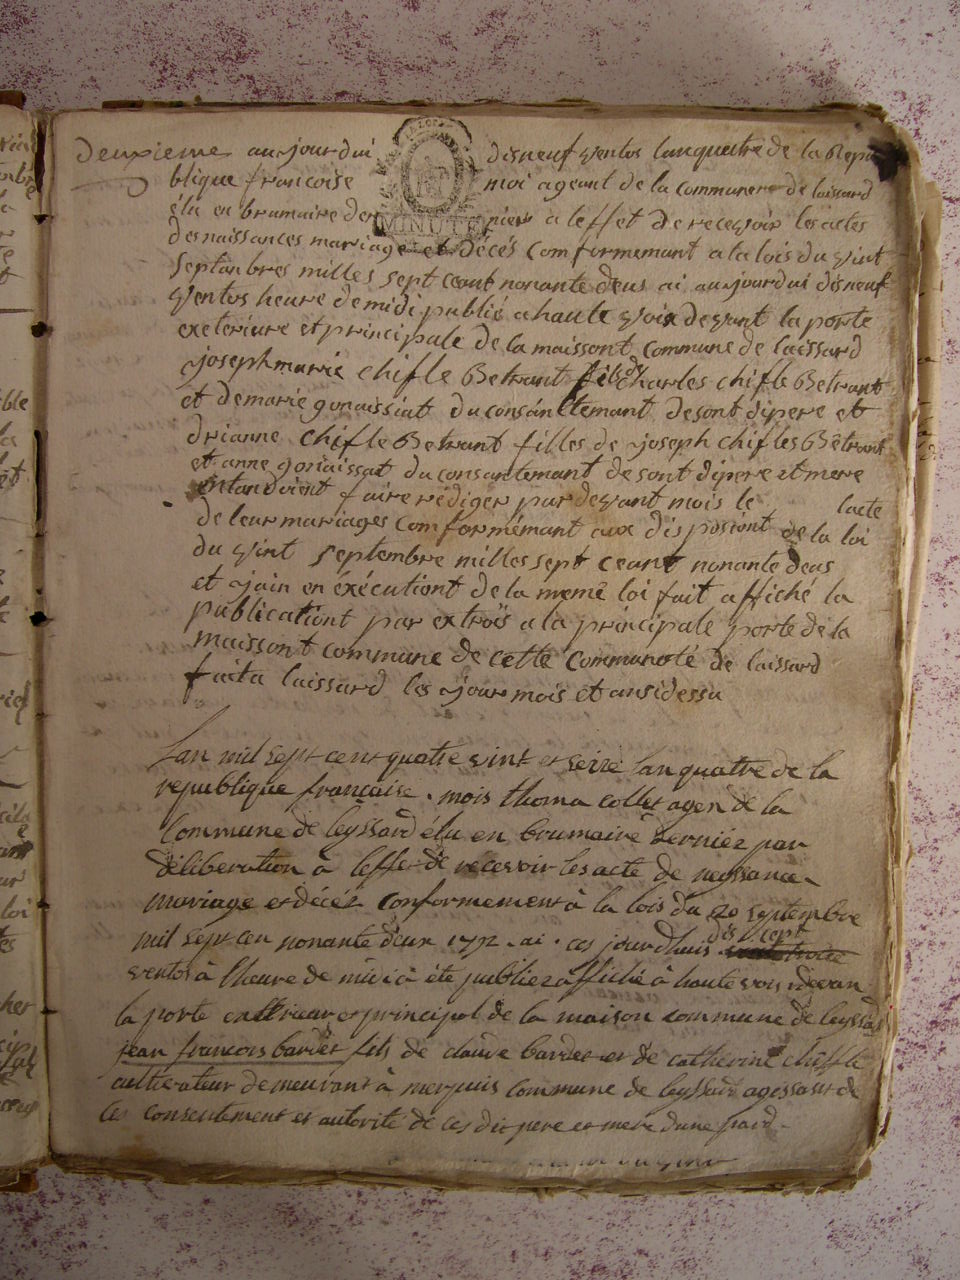 deuxieme aujourdui disneuf ventos lanquatre de la Repu
blique francoise moi ageant de la commune de laissard
élu en brumaire der nier a leffet de recevoir les actes
MINUTE
des naissances mariage et décés comformemant a la lois du vint
septanbres milles sept ceant nonante deus ai aujourdui disneuf
ventos heure de midi publié a haute voix devant la porte
exeterieure et principale de la maissont commune de laissard
joseph marie chifle Betrant fils de charles chifle Betrant
et de marie gonaissiat du consantemant desont dipere et
drianne chifle Betrant filles de joseph chifles Bétrant
et anne gonaissat du consantemant de sont dipere et mere
entandoient faire rédiger par devant mois le lacte
de leur mariages comformémant aux disposiont de la loi
du vint septembre milles sept ceant nonante deus
et ajain en éxécutiont de la meme loi fait affiché la
publicationt par extrois a la principale porte de la
maissont commune de cette communoté de laissard
fait a laissard les ajour mois et ansidessu
Lan mil sept cent quatre vint et seize lan quatre de la
republique francaise . mois thoma collet agen de la
commune de leyssard élu en brumaire dernier par
déliberation à leffet de recevoir les acte de neyssance
mariage et décéz conformement à la lois du 20 septembre
dis sept
mil sept cen nonante deux 1792 . ai . ces jourdhuis
ventos à lheure de midi à été publiez affiché à haute vois devan
la porte exterieur et principal de la maison commune de leyssard
jean francois bardet fils de claude bardet et de catherine chiffle
cultivateur demeurant à merpuis commune de leyssard agissant de
ces consentement et autorité de ces dis pere et mere dune pard .